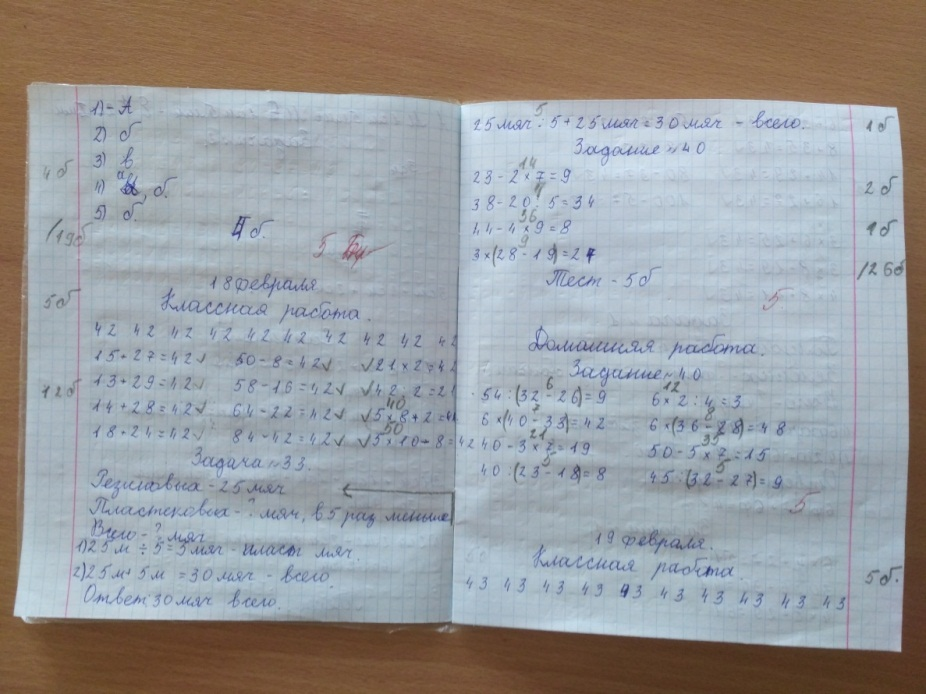 1) - А
2) б
3) в
4б
4) а, б.
5) б.
/19б
4б.
5
18 февраля
Классная работа.
5б
42 42 42 42 42 42 42 42 42 42
15+27=42✓ 50-8=42✓ ✓21×2=42
12б
13+29=42✓ 58-16=42✓ ✓42:2=21
40
14+28=42✓ 64-22=42✓ ✓5×8+2=42
50
18+24=42✓ 84-42=42✓ ✓5×10-8=42
Задача №33.
Резиновых - 25 мяч
Пластековых - ? мяч, в 5 раз меньше
Всего - ? мяч
1) 25 м ÷ 5 = 5 мяч - пласт мяч.
2) 25 м + 5 м = 30 мяч - всего.
Ответ 30 мяч всего.
5
25 мяч : 5 + 25 мяч = 30 мяч - всего.
1б
Задание №40
14
23-2×7=9
2б
4
38-20:5=34
36
44-4×9=8
1б
9
3×(28-19)=27
/26б
Тест - 5б
5
Домашняя работа.
Задание №40
6 12
54:(32-26)=9 6×2:4=3
7 8
6×(40-33)=42 6×(36-28)=48
21 35
40-3×7=19 50-5×7=15
5 5
40:(23-18)=8 45:(32-27)=9
5
19 февраля.
Классная работа.
5б.
43 43 43 43 43 43 43 43 43 43